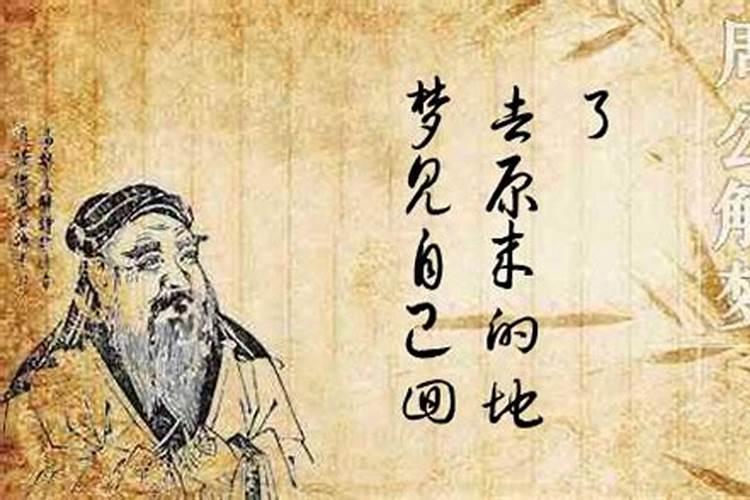 梦见自己回
去原来的地
了
周公解梦